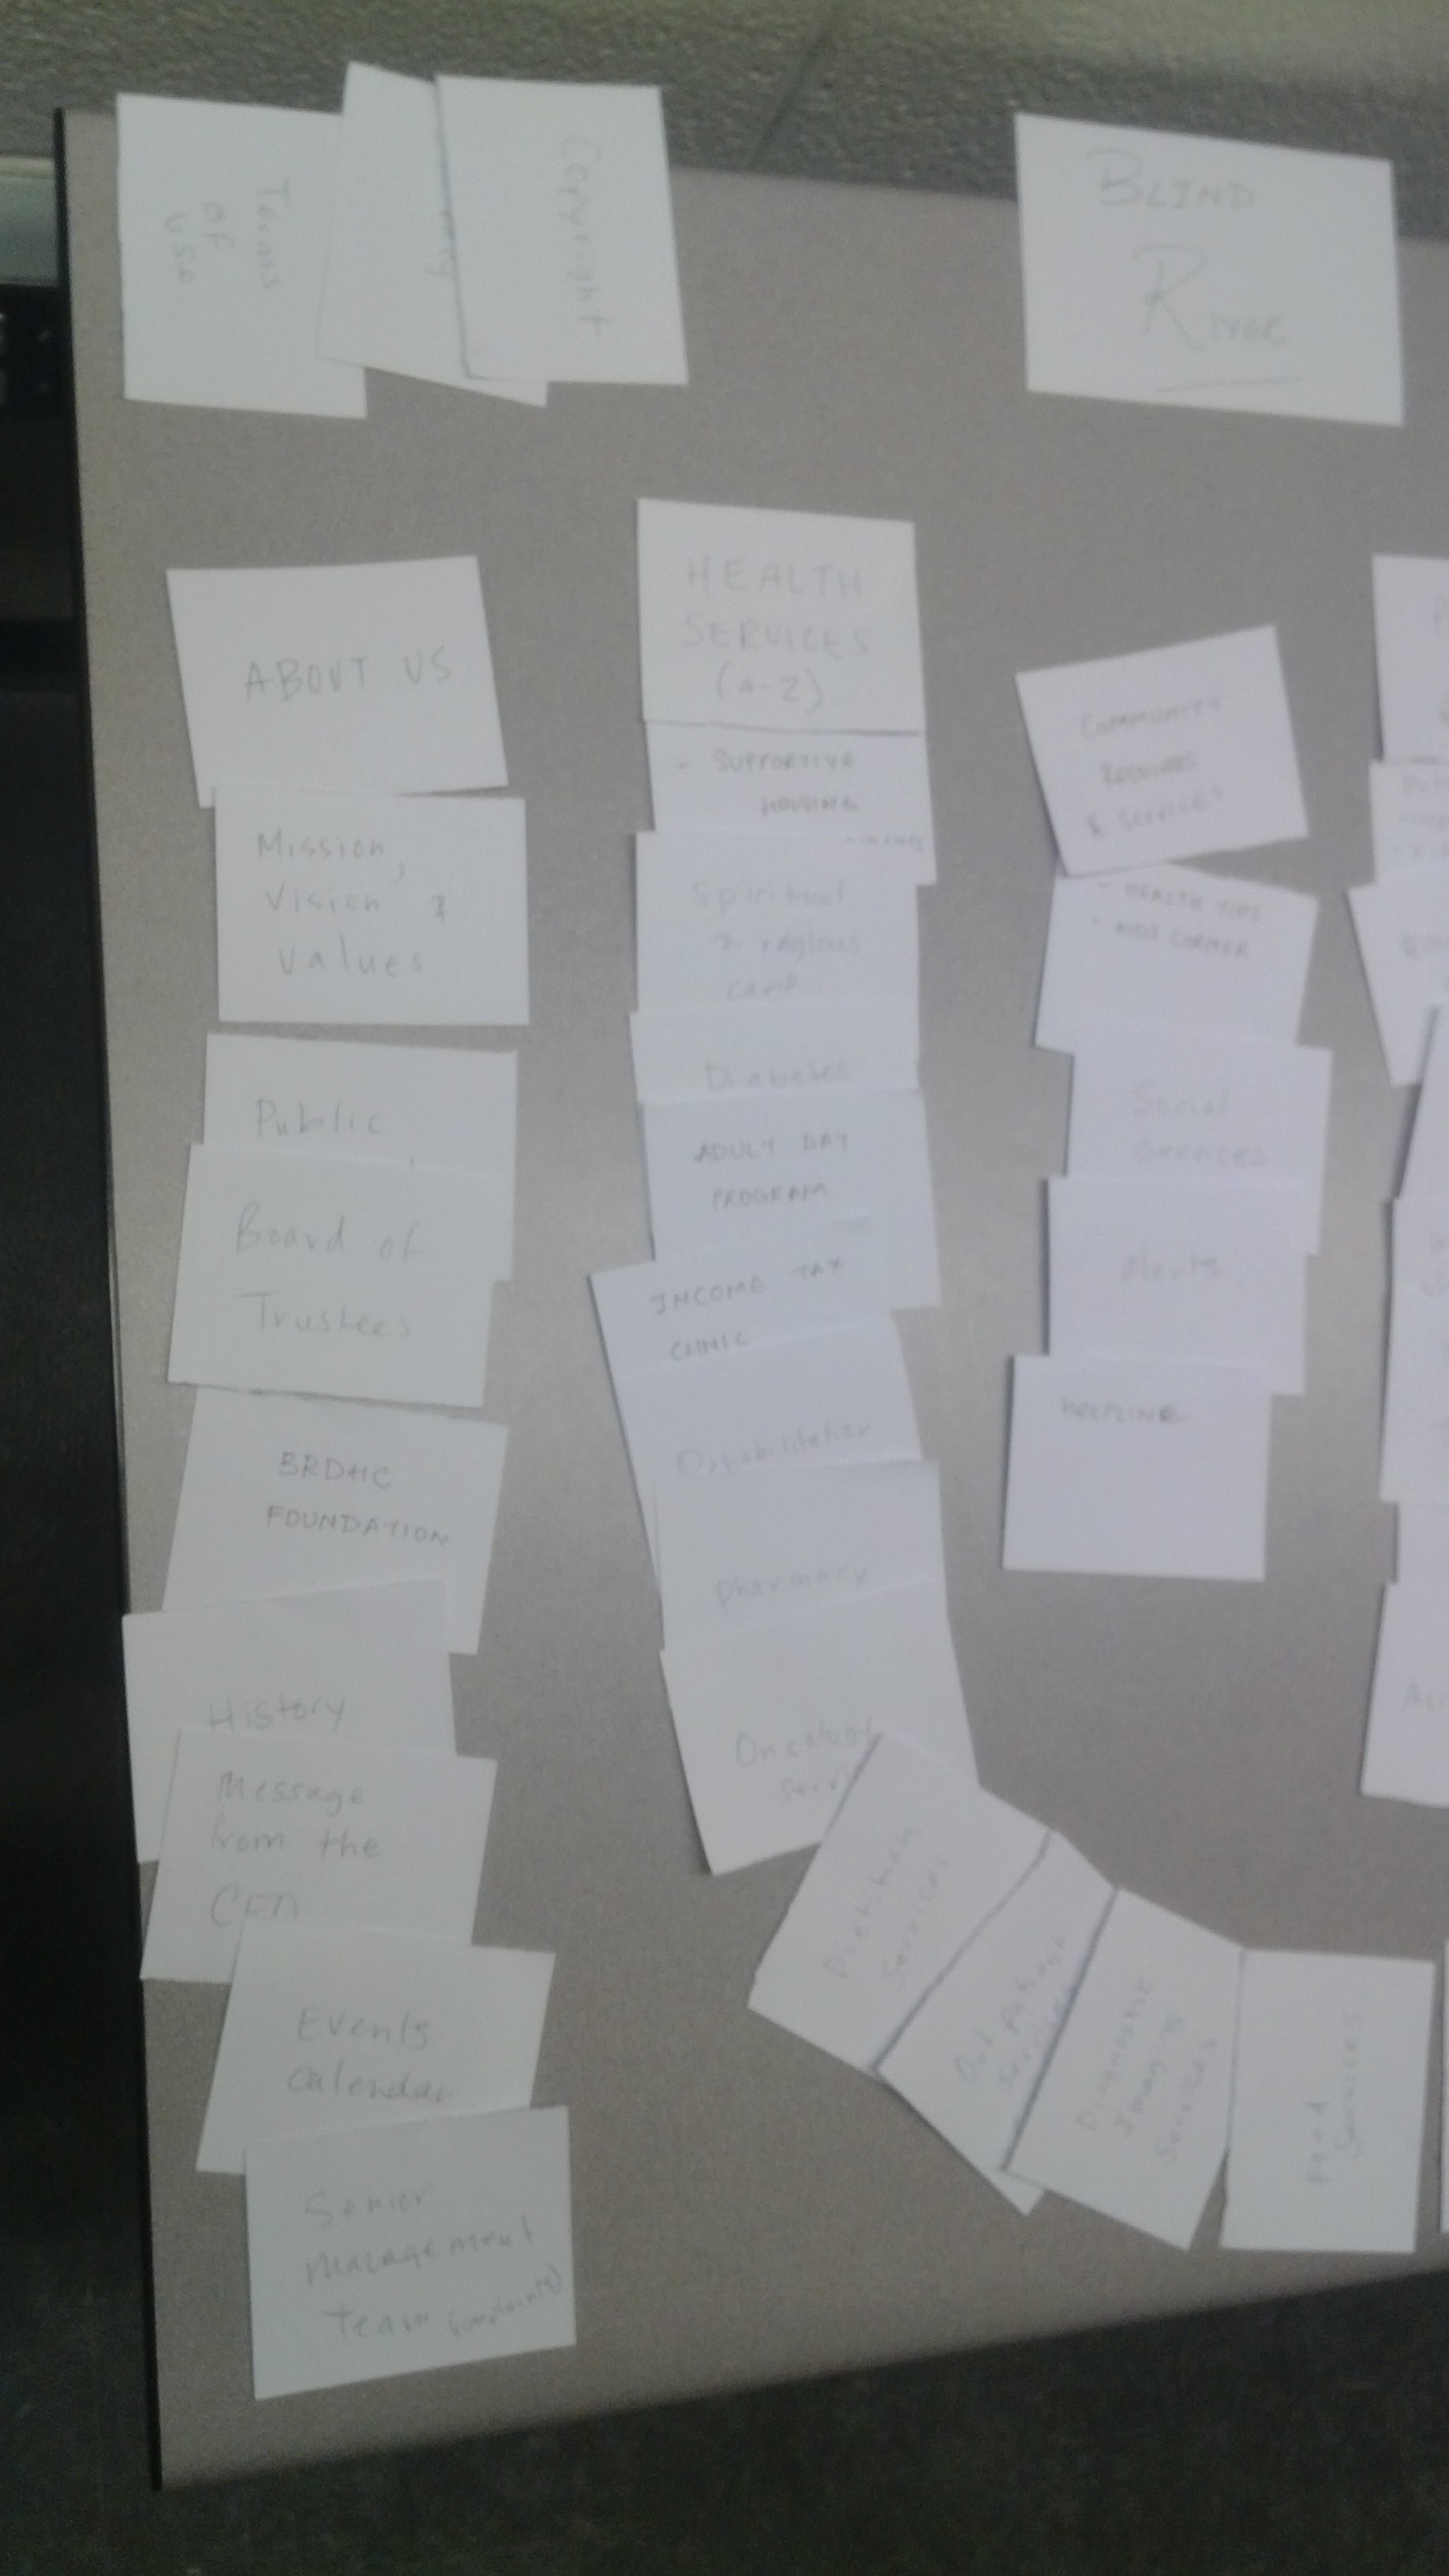 Terms
of
use
Copyright
BLIND
RIVER
ABOUT US
Mission,
Vision &
Values
Public
Board of
Trustees
BRDHC
FOUNDATION
History
Message
from the
CEO
Events
Calendar
Senior
Management
Team (complaints)
HEALTH
SERVICES
(A-Z)
- SUPPORTIVE
HOUSING
Spiritual
& religious
care
Diabetes
ADULT DAY
PROGRAM
INCOME TAX
CLINIC
Rehabilitation
pharmacy
Oncology
Dietitian
Services
Out Patient
Services
Diagnostic
Imaging
Services
Food
Services
COMMUNITY
& SERVICES
- HEALTH TIPS
- KIDS CORNER
Social
Services
Alerts
HELPLINE